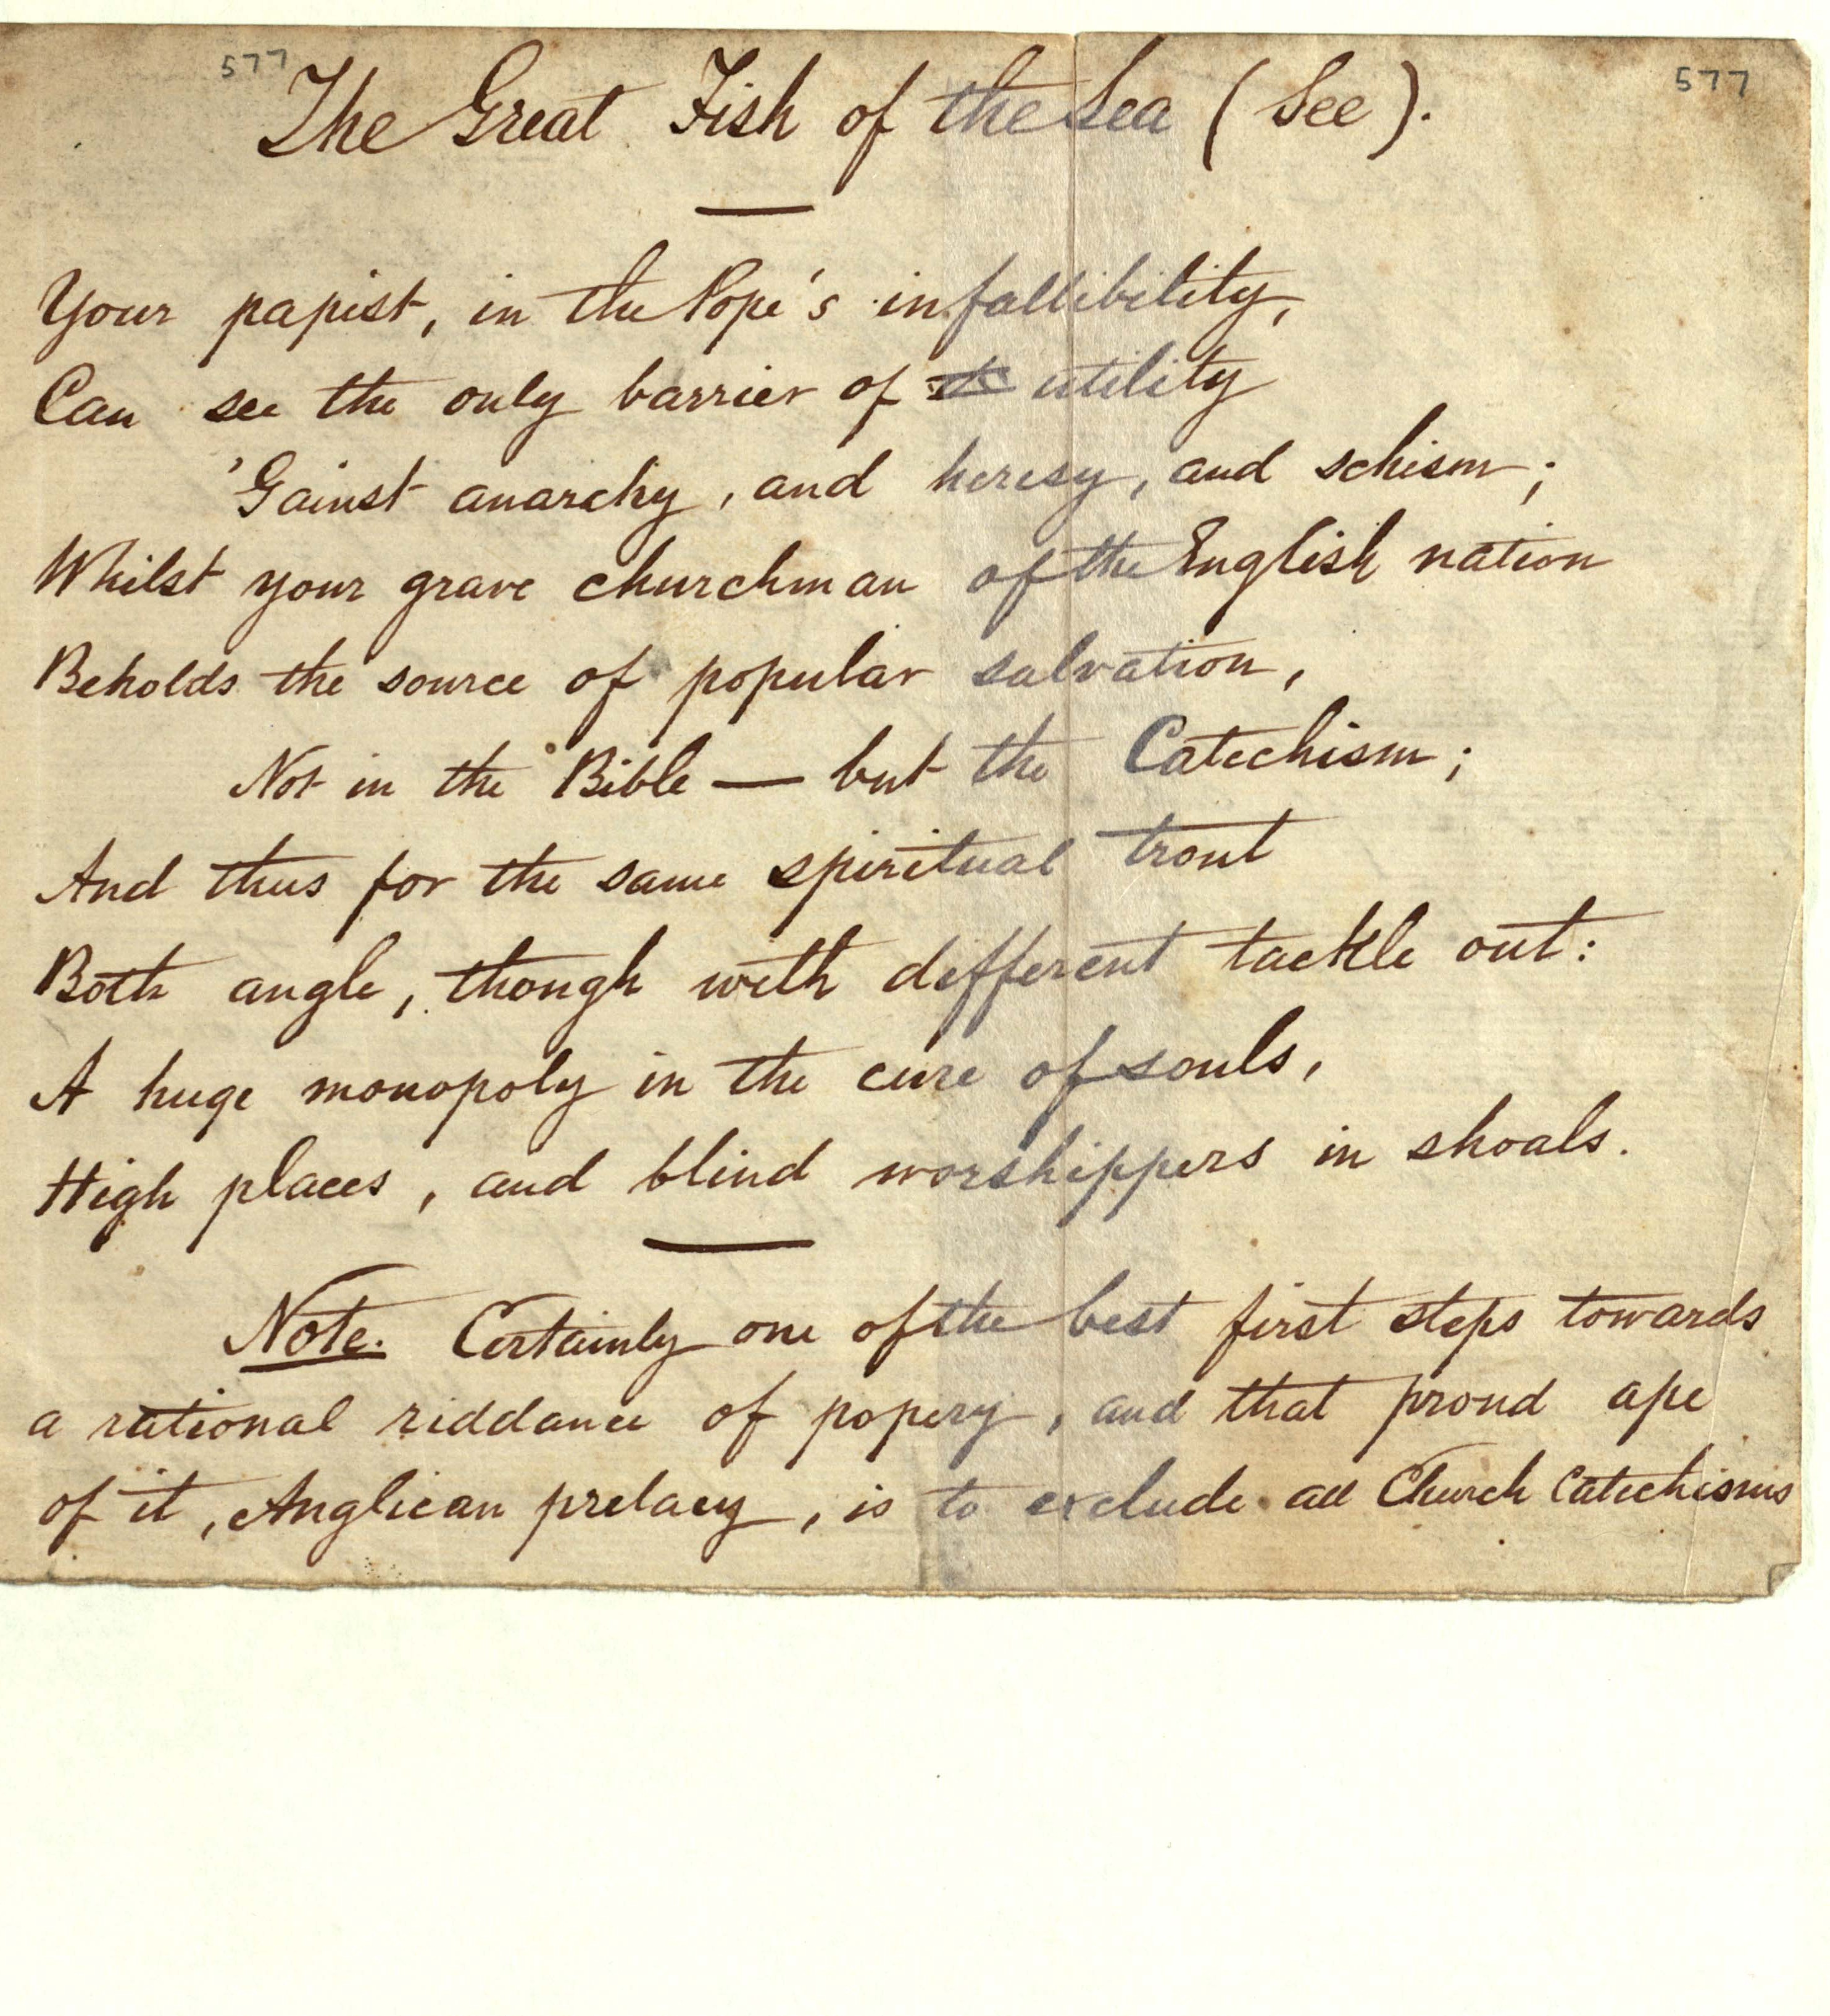 577 577
The Great Fish of the Sea (See).
Your papist, in the Pope's infallibility,
Can see the only barrier of utility
'Gainst anarchy, and heresy, and schism;
Whilst your grave churchman of the English nation
Beholds the source of popular salvation,
Not in the Bible — but the Catechism;
And thus for the same spiritual trout
Both angle, though with different tackle out:
A huge monopoly in the cure of souls,
High places, and blind worshippers in shoals.
Note. Certainly one of the best first steps towards
a rational riddance of popery, and that proud ape
of it, Anglican prelacy, is to exclude all Church Catechisms